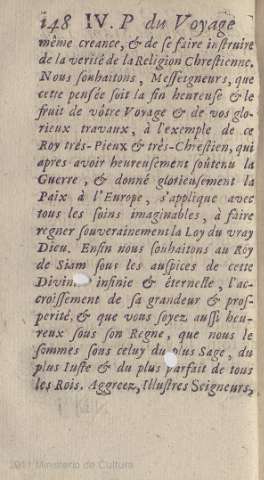 148 IV. P du Voyage
même creance, & de se faire instruire
de la verité de la Religion Chrestienne.
Nous souhaitons, Messeigneurs, que
cette pensée soit la fin heureuse & le
fruit de vôtre Voyage & de vos glo-
rieux travaux, à l'exemple de ce
Roy trés-Pieux & trés-Chrestien, qui
apres avoir heureusement soûtenu la
Guerre, & donné glorieusement la
Paix à l'Europe, s'applique avec
tous les soins imaginables, à faire
regner souverainement la Loy du vray
Dieu. Enfin nous souhaitons au Roy
de Siam sous les auspices de cette
Divin infinie & éternelle, l'ac-
croissement de sa grandeur & pros-
perité, & que vous soyez aussi heu-
reux sous son Regne, que nous le
sommes sous celuy du plus Sage, du
plus Juste & du plus parfait de tous
les Rois. Aggreez, Illustres Seigneurs,
2011 Ministerio de Cultura